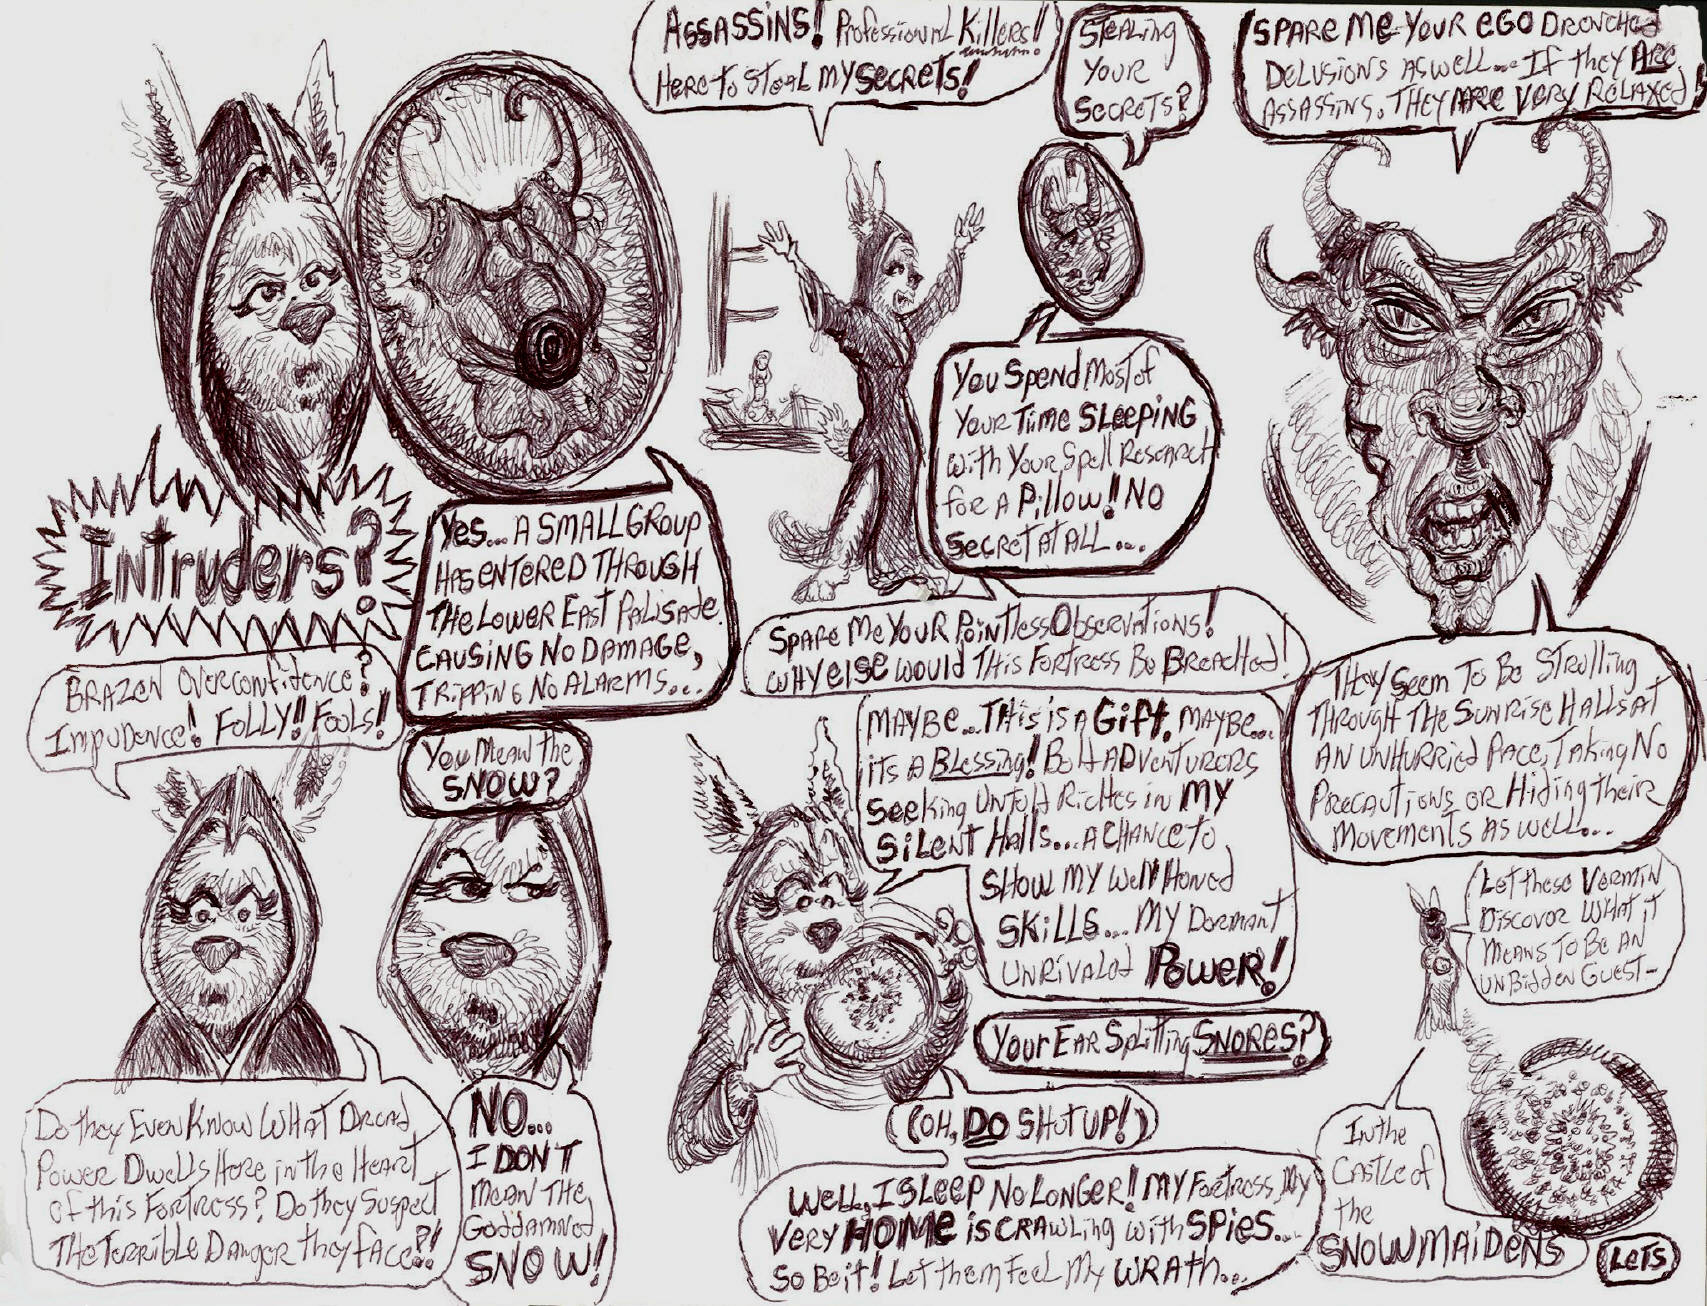 Intruders?
Yes... A SMALL GROUP
HAS ENTERED THROUGH
THE LOWER EAST PALISADE.
CAUSING NO DAMAGE,
TRIPPING NO ALARMS...
BRAZEN OVERCONFIDENCE?
IMPUDENCE! FOLLY!! FOOLS!
You MEAN THE
SNOW?
Do they Even Know What Dread
Power Dwells Here in the Heart
of this Fortress? Do they Suspect
The Terrible Danger they face?!
NO...
I DON'T
MEAN THE
GODDAMNED
SNOW!
ASSASSINS! Professional Killers!!
Here to Steal MY SECRETS!
Stealing
Your
Secrets?
You Spend Most of
Your Time SLEEPING
with Your Spell Research
for a Pillow!! NO
Secret AT ALL...
Spare Me Your Pointless Observations!
WHY else would This Fortress Be Breached!
MAYBE... THIS is A Gift. MAYBE...
its A Blessing! Bold ADVENTURERS
Seeking Untold Riches in MY
SILENT HALLS... A CHANCE to
SHOW MY Well Honed
SKILLS... MY Dormant
UNRIVALED POWER!
Your Ear Splitting SNORES?
(OH, DO SHUT UP!)
WELL, I SLEEP NO LONGER!! MY Fortress, My
Very HOME is CRAWLING with SPIES...
So Be it! Let them Feel My WRATH...
SPARE ME YOUR EGO DRENCHED
DELUSIONS AS WELL... IF they ARE
ASSASSINS. THEY ARE VERY RELAXED!
They Seem To Be Strolling
Through The Sunrise Halls At
AN UNHURRIED PACE, TAKING NO
Precautions or Hiding their
Movements As well...
Let these Vermin
Discover What it
Means To Be An
UNBidden Guest-
In the
Castle of
the
SNOWMAIDENS
LETS